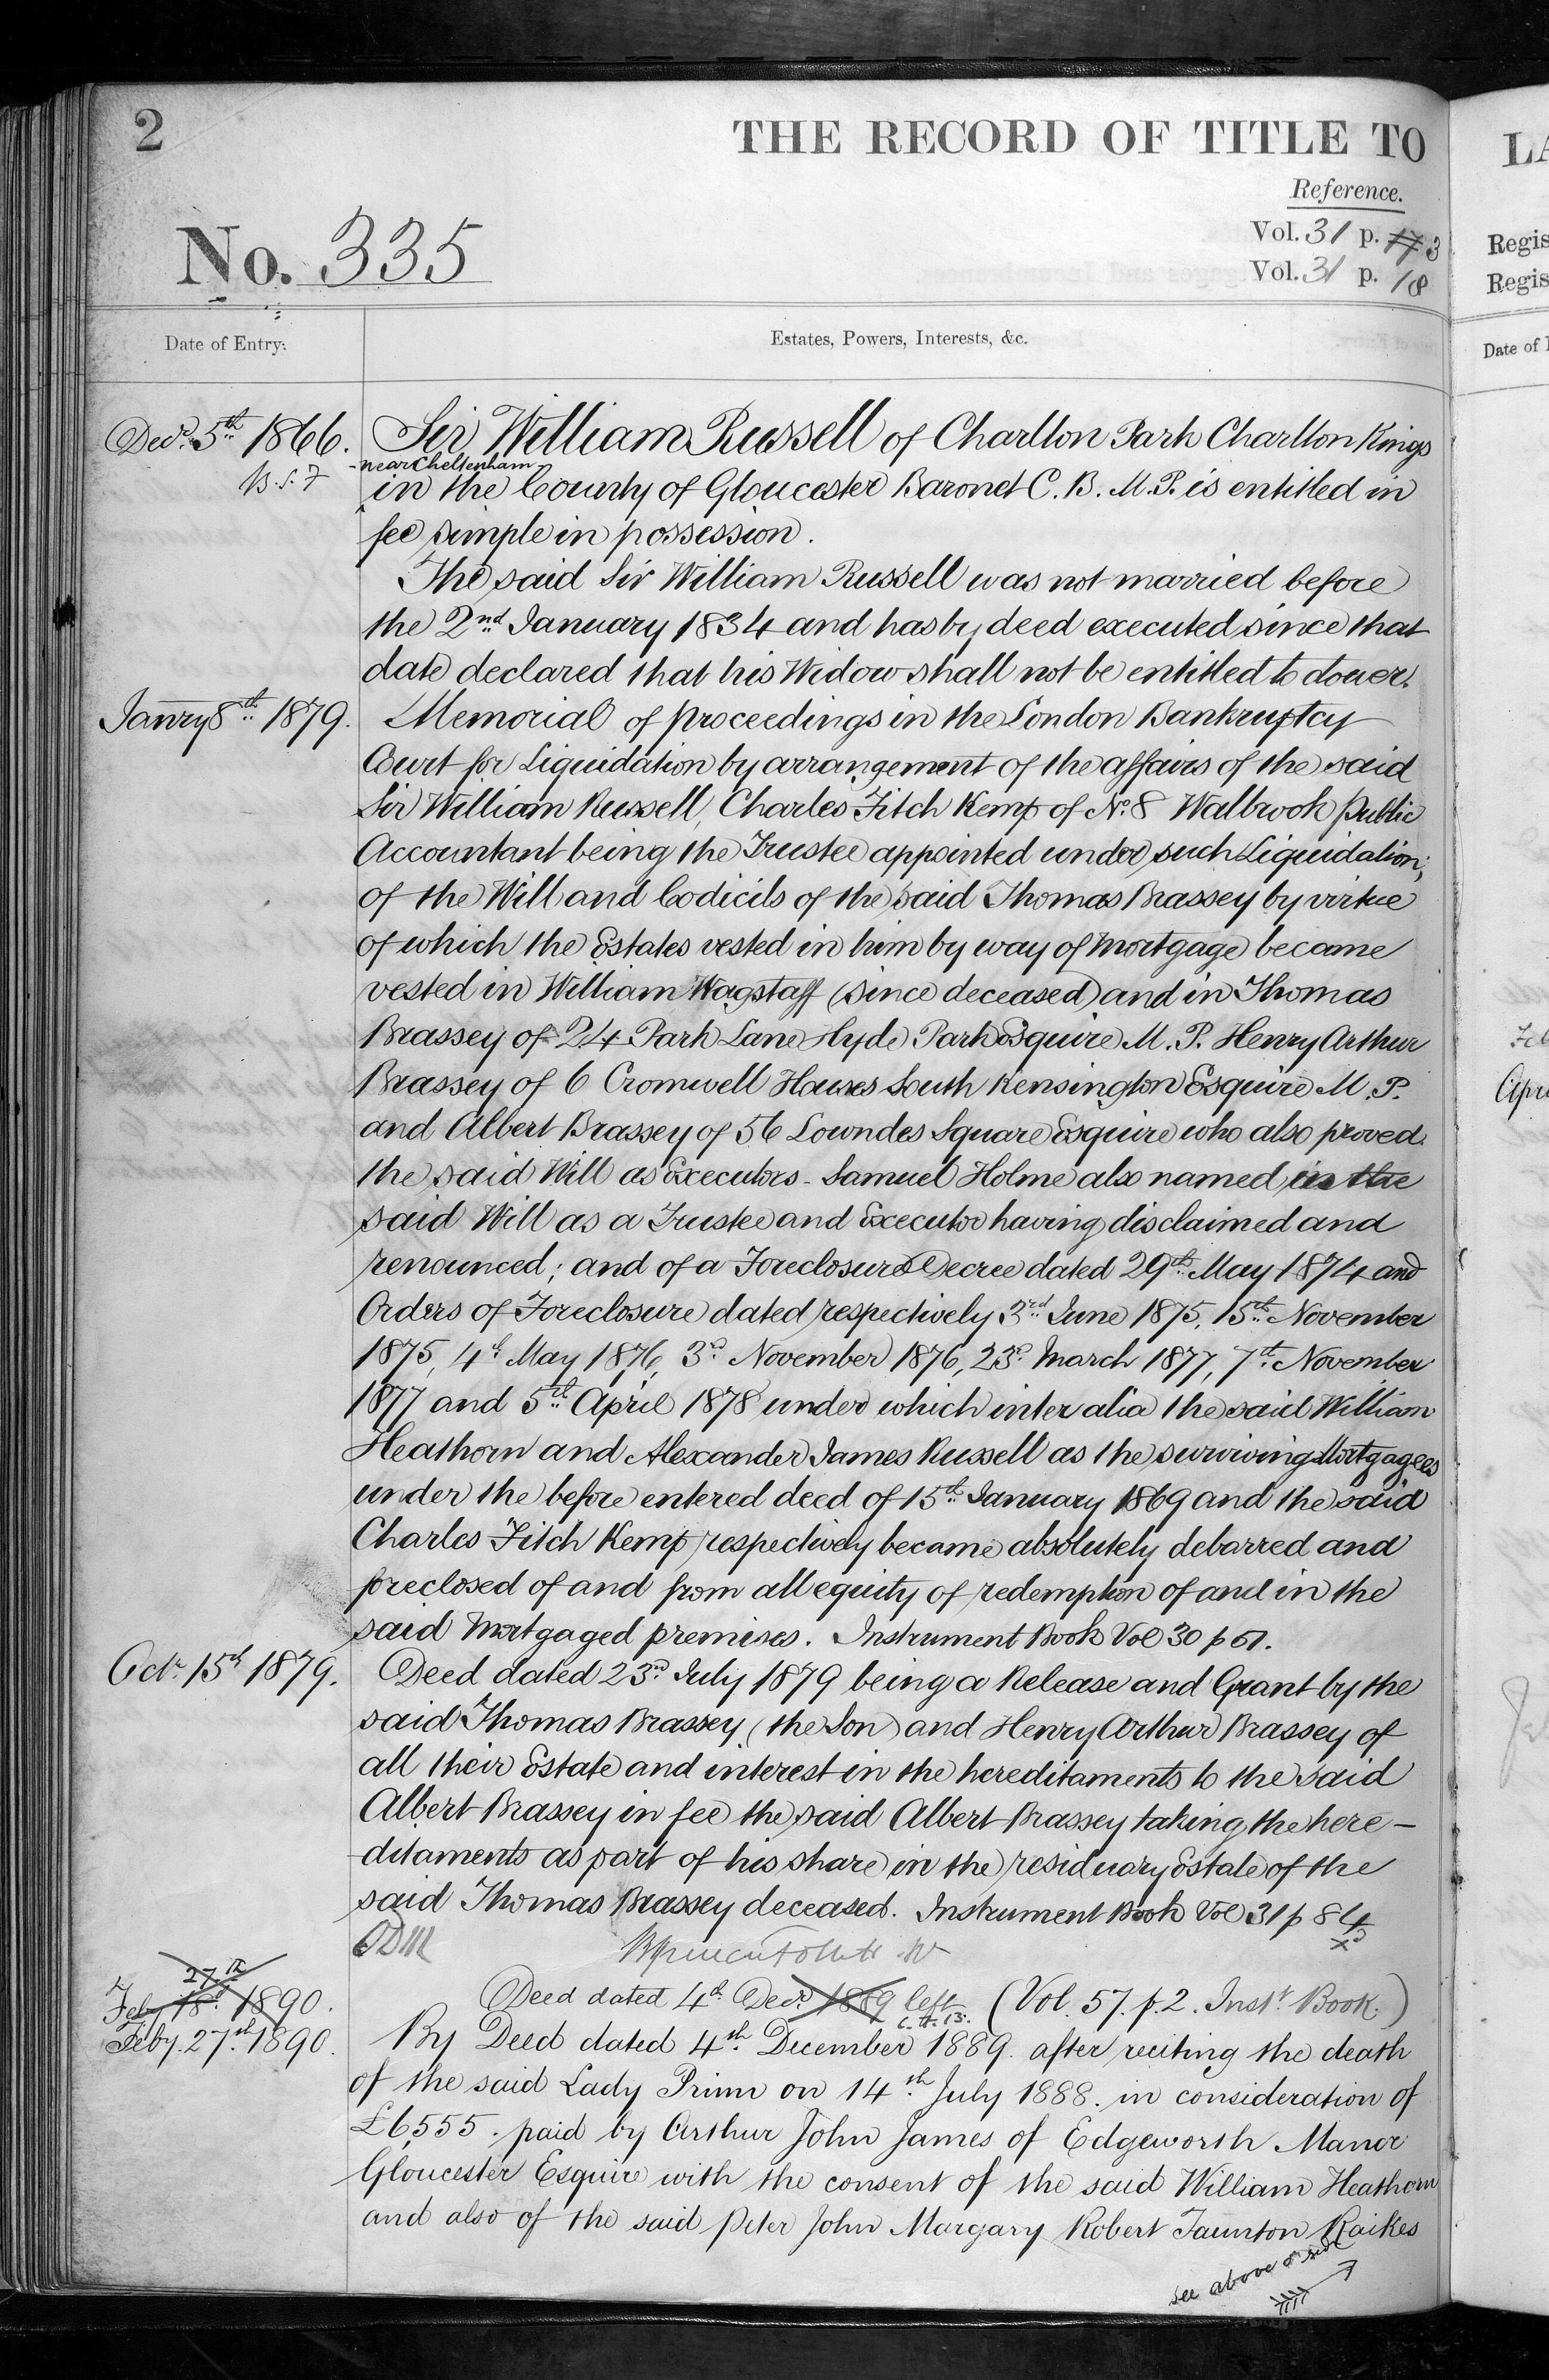 2
THE RECORD OF TITLE TO
Reference.
No. 335
Vol. 31 p. 17 3
Vol. 31 p. 18
Date of Entry.
Estates, Powers, Interests, &c.
Decr. 5th 1866.
B.S. 7
Sir William Russell of Charlton Park Charlton Kings
near Cheltenham
in the County of Gloucester Baronet C.B. M.P. is entitled in
fee simple in possession.
The said Sir William Russell was not married before
the 2nd January 1834 and has by deed executed since that
date declared that his Widow shall not be entitled to dower.
Janry 8th 1879.
Memorial of proceedings in the London Bankruptcy
Court for Liquidation by arrangement of the affairs of the said
Sir William Russell, Charles Fitch Kemp of No. 8 Walbrook Public
Accountant being the Trustee appointed under such Liquidation;
of the Will and Codicils of the said Thomas Brassey by virtue
of which the Estates vested in him by way of Mortgage became
vested in William Wagstaff (since deceased) and in Thomas
Brassey of 24 Park Lane Hyde Park Esquire M.P. Henry Arthur
Brassey of 6 Cromwell Houses South Kensington Esquire M.P.
and Albert Brassey of 56 Lowndes Square Esquire who also proved
the said Will as Executors - Samuel Holme also named in the
said Will as a Trustee and Executor having disclaimed and
renounced; and of a Foreclosure Decree dated 29th May 1874 and
Orders of Foreclosure dated respectively 3rd June 1875, 15th November
1875, 4th May 1876, 3rd November 1876, 23rd March 1877, 7th November
1877 and 5th April 1878 under which inter alia the said William
Heathorn and Alexander James Russell as the surviving Mortgagees
under the before entered deed of 15th January 1869 and the said
Charles Fitch Kemp respectively became absolutely debarred and
foreclosed of and from all equity of redemption of and in the
said Mortgaged premises. Instrument Book Vol 30 p 51.
Octr. 15th 1879.
Deed dated 23rd July 1879 being a Release and Grant by the
said Thomas Brassey (the Son) and Henry Arthur Brassey of
all their Estate and interest in the hereditaments to the said
Albert Brassey in fee the said Albert Brassey taking the here-
ditaments as part of his share in the residuary Estate of the
said Thomas Brassey deceased. Instrument Book Vol 31 p 84
27th
Feby 18th 1890.
Deed dated 4th Decr. 1889 left (Vol. 57. p. 2. Instt. Book.)
C.H.B.
Feby. 27th 1890.
By Deed dated 4th December 1889. after reciting the death
of the said Lady Prinn on 14th July 1888. in consideration of
£6,555. paid by Arthur John James of Edgeworth Manor
Gloucester Esquire with the consent of the said William Heathorn
and also of the said Peter John Margary Robert Taunton Raikes
see above & side
LA
Regis
Regis
Date of
Feb
Apri